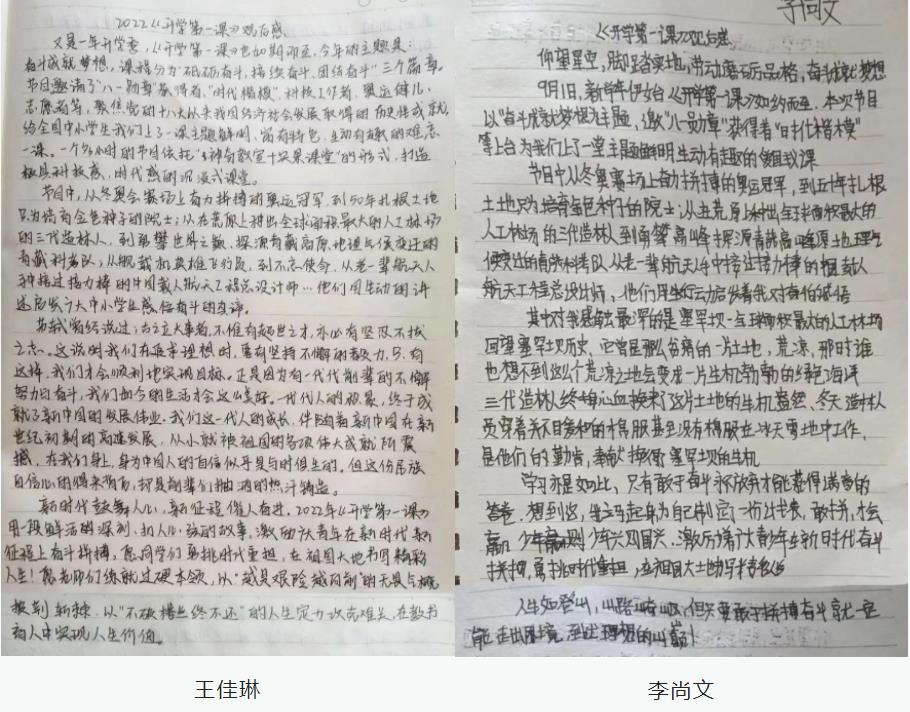 2022《开学第一课》观后感
又是一年开学季，《开学第一课》也如期而至，今年的主题是：
奋斗成就梦想，课程分为“砥砺奋斗，接续奋斗，团结奋斗”三个篇章。
节目邀请了“八一勋章”获得者、“时代楷模”、科技工作者、奥运健儿、
志愿者等，聚焦党的十八大以来我国经济社会发展取得的历史性成就，
给全国中小学生我们上了一课主题鲜明，富有特色，生动有趣的难忘
一课。一个多小时的节目依托“神奇教室+实景课堂”的形式，打造
极具科技感，时代感的沉浸式课堂。
节目中，从冬奥会赛场上奋力拼搏的奥运冠军，到50年扎根土地
只为培育金色种子的院士；从在荒原上种出全球面积最大的人工林场
的三代造林人，到勇攀世界之巅、探源青藏高原地理气候变迁的
青藏科考队，从舰载机英雄飞行员，到不忘使命，从老一辈航天人
手中接过接力棒的中国载人航天工程总设计师…他们用生动的讲
述启发广大中小学生感悟奋斗的真谛。
苏轼曾经说过：古立大事者，不惟有超世之才，亦必有坚忍不拔
之志。这说明我们在追求理想时，要有坚持不懈的毅力，只有
这样，我们才会顺利地实现目标。正是因为有一代代前辈的不懈
努力与奋斗，我们如今的生活才会这么美好。一代人的积累，终于成
就了新中国的发展伟业。我们这一代人的成长，伴随着新中国在新
世纪初期的高速发展，从小就被祖国的各项伟大成就所震
撼，在我们身上，身为中国人的自信似乎是与时俱生的。但这份民族
自信心的得来背后，却是前辈们抛洒的热汗铸造。
新时代鼓舞人心，新征程催人奋进。2022年《开学第一课》
用一段鲜活的深刻、扣人心弦的故事，激励广大青年在新时代新
征程上奋斗拼搏，愿同学们勇挑时代重担，在祖国大地书写精彩
人生！愿老师们练就过硬本领，以“越是艰险越向前”的无畏与
披荆斩棘，以“不破楼兰终不还”的人生定力攻克难关，在教书
育人中实现人生价值。
李尚文
《开学第一课》观后感
仰望星空，脚踏实地，劳动磨砺品格，奋斗成就梦想
9月1日，新学年伊始《开学第一课》如约而至，本次节目
以“奋斗成就梦想”为主题，邀“八一勋章”获得者“时代楷模”
等上台为我们上了一堂主题鲜明生动有趣的课
节目中从冬奥赛场上奋力拼搏的奥运冠军，到五十年扎根
土地只为培育金色种子的院士；从在荒原上种出全球面积最大的
人工林场的三代造林人到勇攀高峰探源青藏高原地理气
候变迁的青藏科考队从老一辈航天人手中接过接力棒的中国载人
航天工程总设计师，他们用生动启发着我对奋斗的感悟
其中对我感触最深的是塞罕坝—全球面积最大的人工林场
回望塞罕坝历史，它曾是那么贫瘠的一片土地，荒凉，那时谁
也想不到这个荒凉之地会变成一片生机勃勃的绿色海洋
三代造林人终用心血换来了这片土地的生机盎然、冬天造林人
员穿着并不暖和的棉服甚至没有棉服在冰天雪地中工作，
是他们的勤肯，奉献换得塞罕坝的生机
学习亦是如此，只有敢于奋斗永不放弃才能获得满意的
答卷。想到这，我立马起身为自己制定了一份计划表，敢拼，才会
赢，少年强则国强 少年兴则国兴、激励着广大青少年在新时代奋斗
拼搏，勇挑时代重担，在祖国大地书写精彩人生
人生如登山，山路崎岖，但只要敢于拼搏奋斗就一定
能走出困境，到达理想的山巅！
王佳琳
李尚文